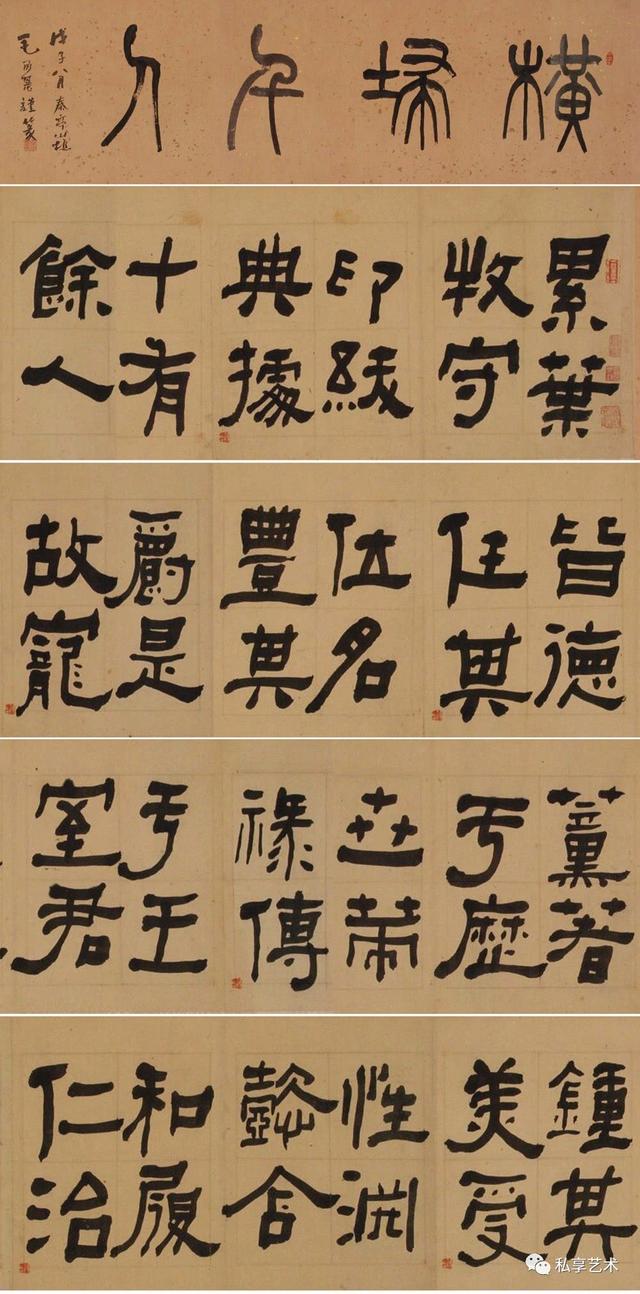 橫掃千人
戊子八月
累葉
牧守
印紱
典據
十有
餘人
皆德
任其
位名
豐其
爵是
故寵
薰著
于歷
世策
祿傳
于王
室君
鍾其
美受
性淵
懿含
和履
仁治
私享艺术